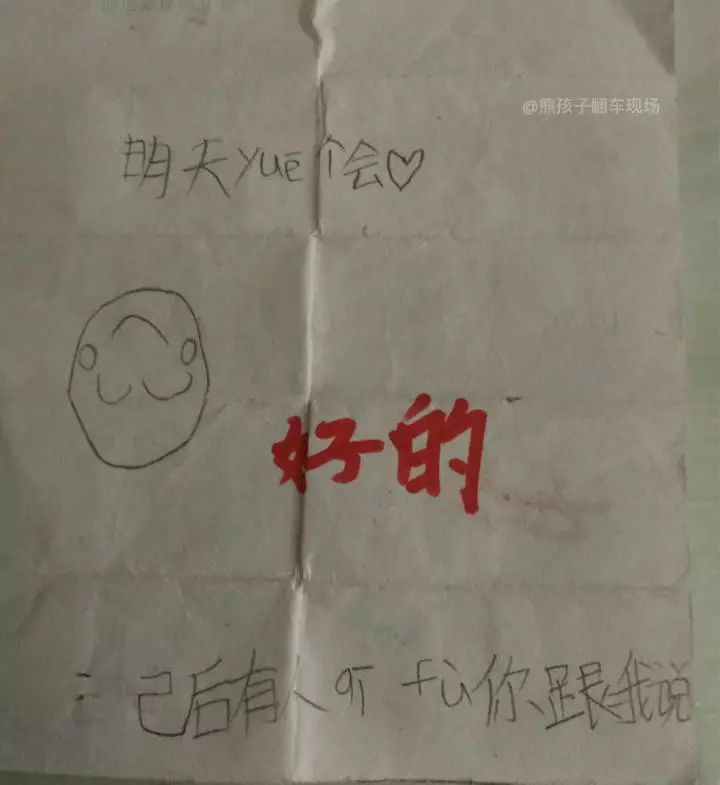 @熊孩子翻车现场
明天yuē个会♡
好的
己后有人qī fù你跟我说